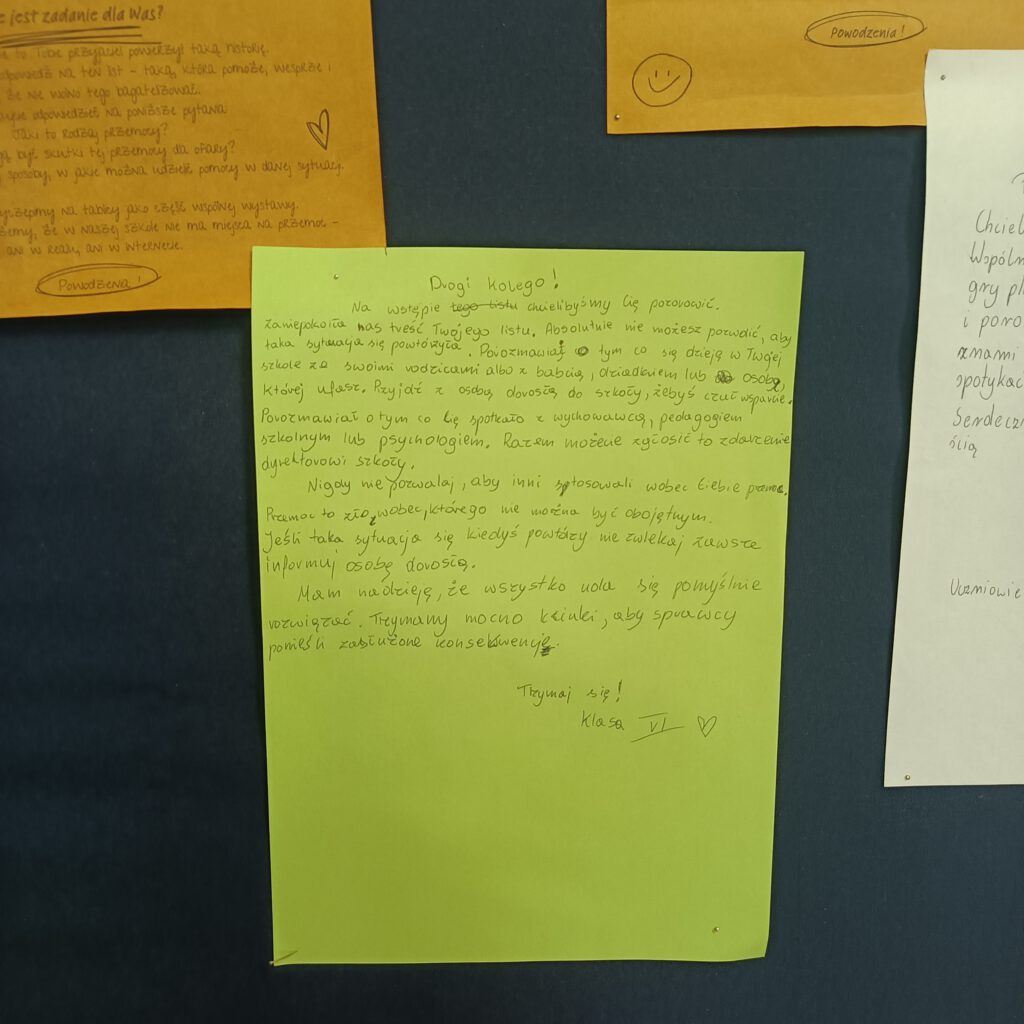 jest zadanie dla Was?
to Tobie przyjaciel powierzył taką historię.
na ten list - taką, która pomoże, wesprze i
że nie wolno tego bagatelizować.
odpowiedzieć na poniższe pytania
Jaki to rodzaj przemocy?
być skutki tej przemocy dla ofiary?
sposoby, w jakie można udzielić pomocy w danej sytuacji.
na tablicy jako część wspólnej wystawy.
że w naszej szkole nie ma miejsca na przemoc -
ani w realu, ani w internecie.
Powodzenia!
Powodzenia!
Drogi kolego!
Na wstępie tego listu chcielibyśmy Cię pozdrowić.
Zaniepokoiła nas treść Twojego listu. Absolutnie nie możesz pozwolić, aby
taka sytuacja się powtórzyła. Porozmawiał o tym co się dzieją w Twojej
szkole ze swoimi rodzicami albo z babcią, dziadkiem lub osobą,
której ufasz. Przyjdź z osobą dorosłą do szkoły, żebyś czuł wsparcie.
Porozmawiał o tym co Cię spotkało z wychowawcą, pedagogiem
szkolnym lub psychologiem. Razem możecie zgłosić to zdarzenie
dyrektorowi szkoły.
Nigdy nie pozwalaj, aby inni stosowali wobec Ciebie przemoc.
Przemoc to zło, wobec, którego nie można być obojętnym.
Jeśli taka sytuacja się kiedyś powtórzy nie zwlekaj zawsze
informuj osobę dorosłą.
Mam nadzieję, że wszystko uda się pomyślnie
rozwiązać. Trzymamy mocno kciuki, aby sprawcy
ponieśli zasłużone konsekwencje.
Trzymaj się!
Klasa VI
Chciel
Wspóln
gry pl
i poro
znami
spotykać
Serdeczn
ścią
Uczniowie